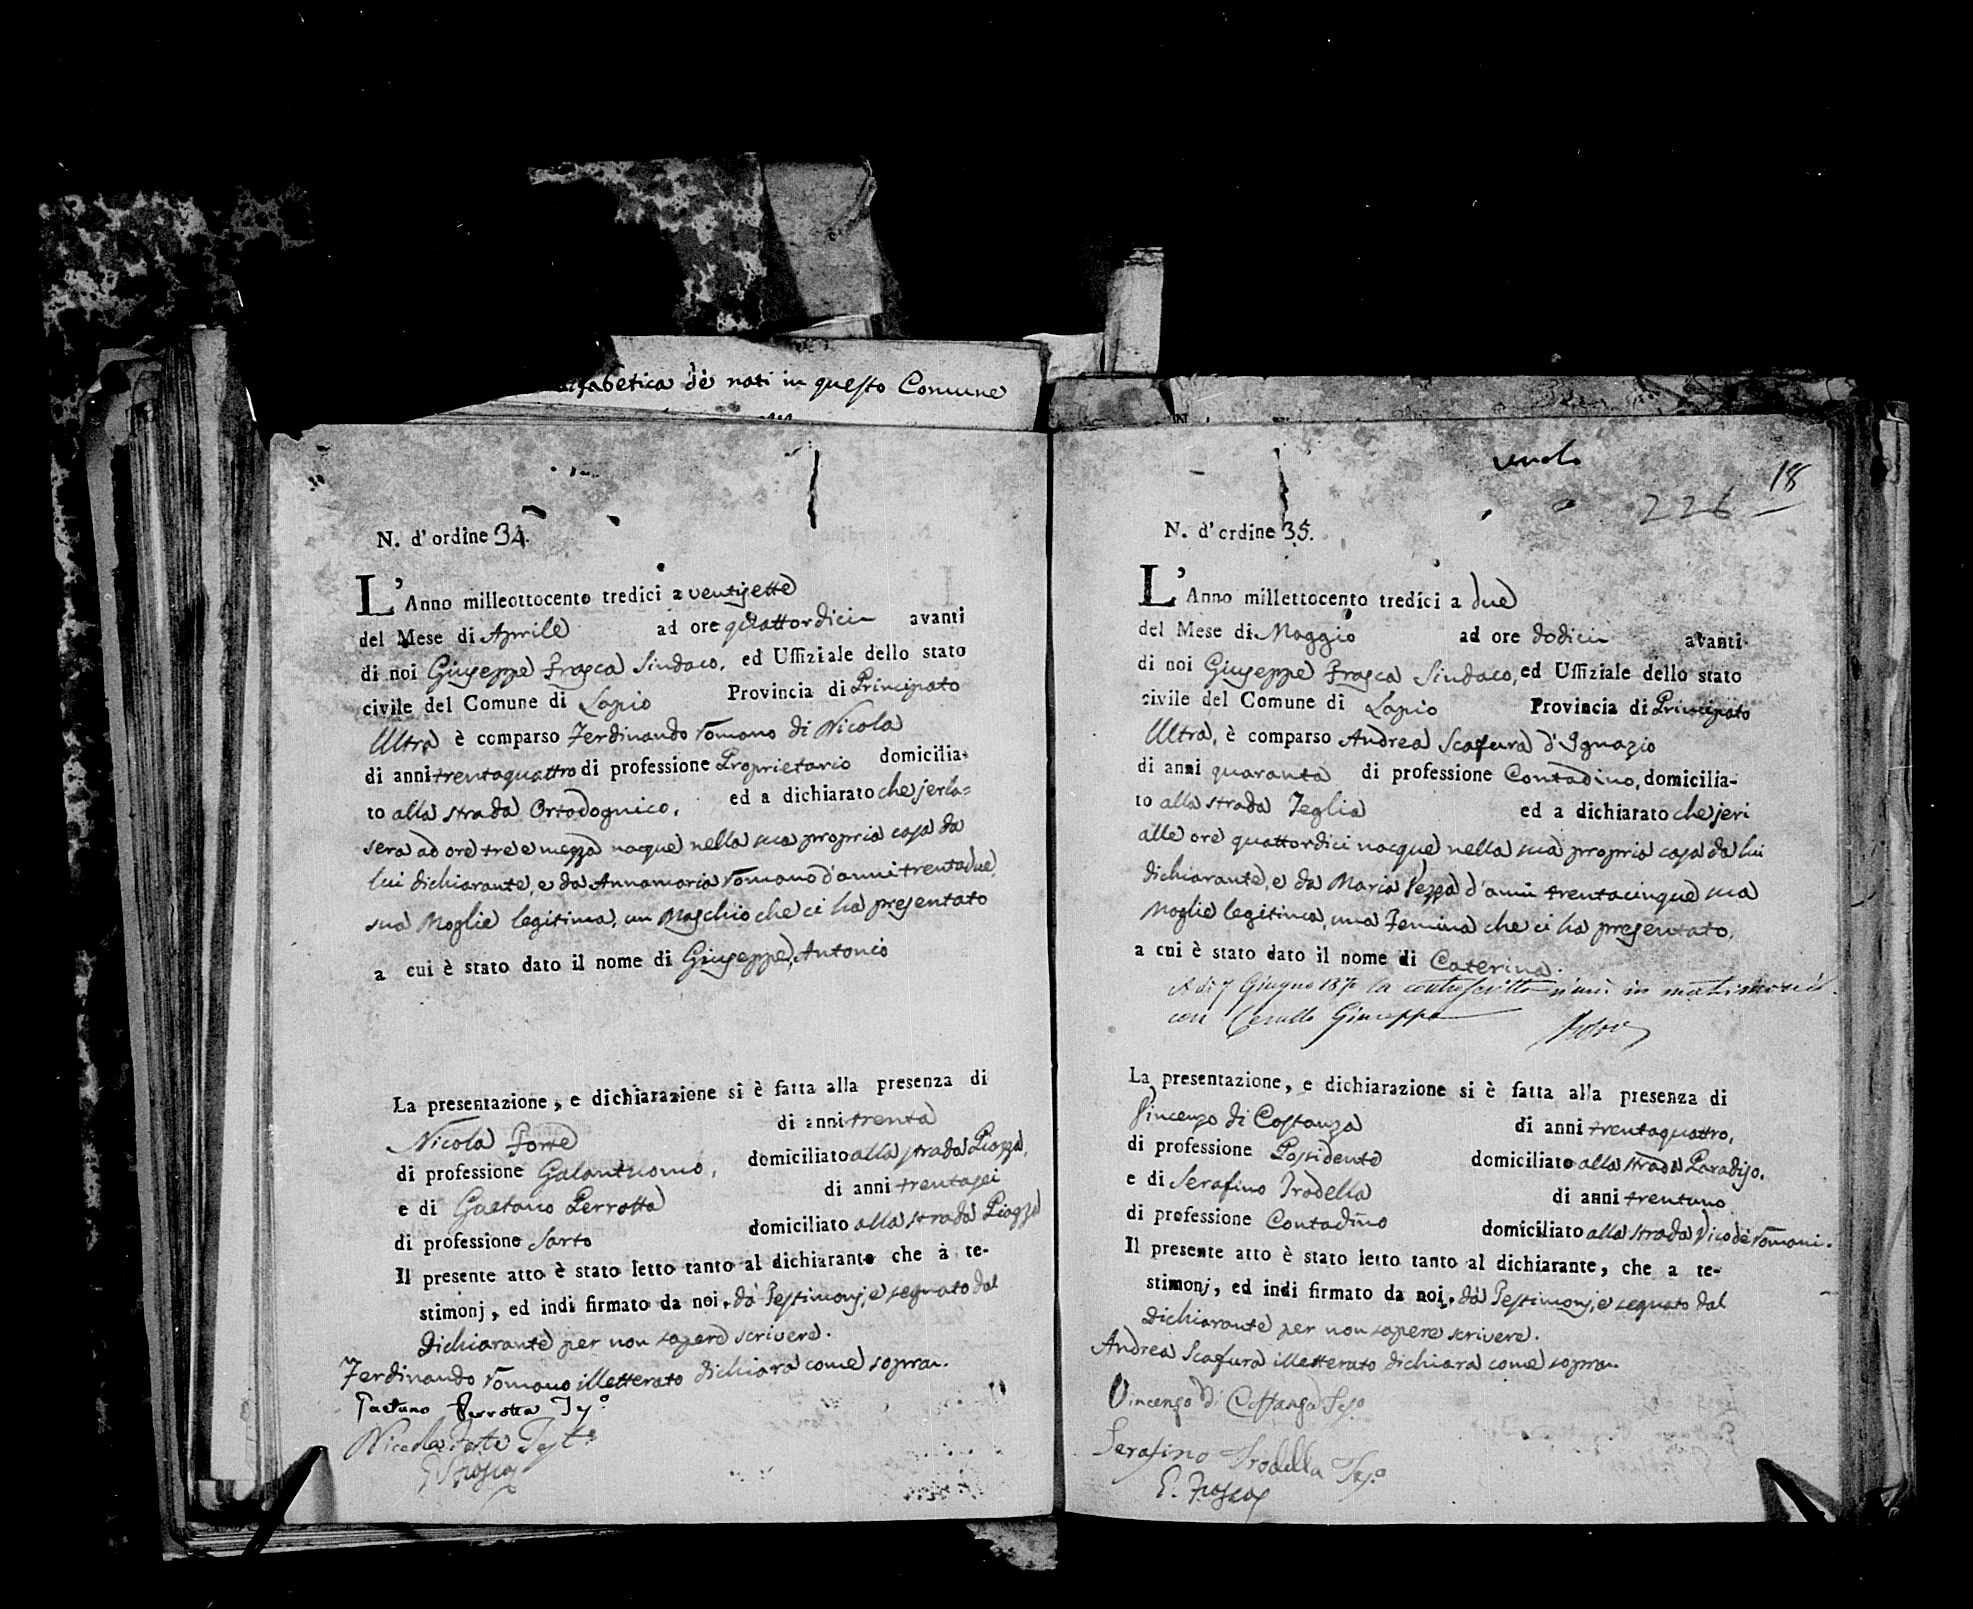 alfabetica dè nati in questo Comune
N. d'ordine 34.
L'Anno milleottocento tredici a ventisette
del Mese di Aprile ad ore quattordici avanti
di noi Giuseppe Frasca Sindaco, ed Uffiziale dello stato
civile del Comune di Lapio Provincia di Principato
Ultra è comparso Ferdinando Romano di Nicola
di anni trentaquattro di professione Proprietario domicilia-
to alla strada Ortodognico, ed a dichiarato che jerla=
sera ad ore tre e mezza nacque nella sua propria casa da
lui dichiarante, e da Annamaria Romano d'anni trentadue,
sua Moglie legitima, un Maschio che ci ha presentato
a cui è stato dato il nome di Giuseppe, Antonio
La presentazione, e dichiarazione si è fatta alla presenza di
Nicola Forte di anni trenta
di professione Galantuomo, domiciliato alla strada Piazza,
e di Gaetano Perrotta di anni trentasei
di professione Sarto domiciliato alla strada Piazza
Il presente atto è stato letto tanto al dichiarante che à te-
stimonj, ed indi firmato da noi, dà Testimonj, e segnato dal
Dichiarante per non sapere scrivere.
Ferdinando Romano illetterato dichiara come sopra.
Gaetano Perrotta Tes.º
Nicola Forte Test.º
G. Frasca
verole
18
226
N. d'ordine 35.
L'Anno millettocento tredici a due
del Mese di Maggio ad ore dodici avanti
di noi Giuseppe Frasca Sindaco, ed Uffiziale dello stato
civile del Comune di Lapio Provincia di Principato
Ultra, è comparso Andrea Scafura d'Ignazio
di anni quaranta di professione Contadino, domicilia-
to alla strada Teglia ed a dichiarato che jeri
alle ore quattordici nacque nella sua propria casa da lui
dichiarante, e da Maria Pezza d'anni trentacinque sua
Moglie legitima, una Femina che ci ha presentato,
a cui è stato dato il nome di Caterina.
A dì 7 Giugno la controscritta s'unì in matrimonio
con Cerullo Giuseppe
La presentazione, e dichiarazione si è fatta alla presenza di
Vincenzo di Costanza di anni trentaquattro,
di professione Possidente domiciliato alla strada Paradiso,
e di Serafino Trodella di anni trentuno
di professione Contadino domiciliato alla strada Vico dè Romani.
Il presente atto è stato letto tanto al dichiarante, che a te-
stimonj, ed indi firmato da noi, dà Testimonj, e segnato dal
Dichiarante per non sapere scrivere.
Andrea Scafura illetterato dichiara come sopra.
Vincenzo di Costanza Tes.º
Serafino Trodella Tes.º
G. Frasca